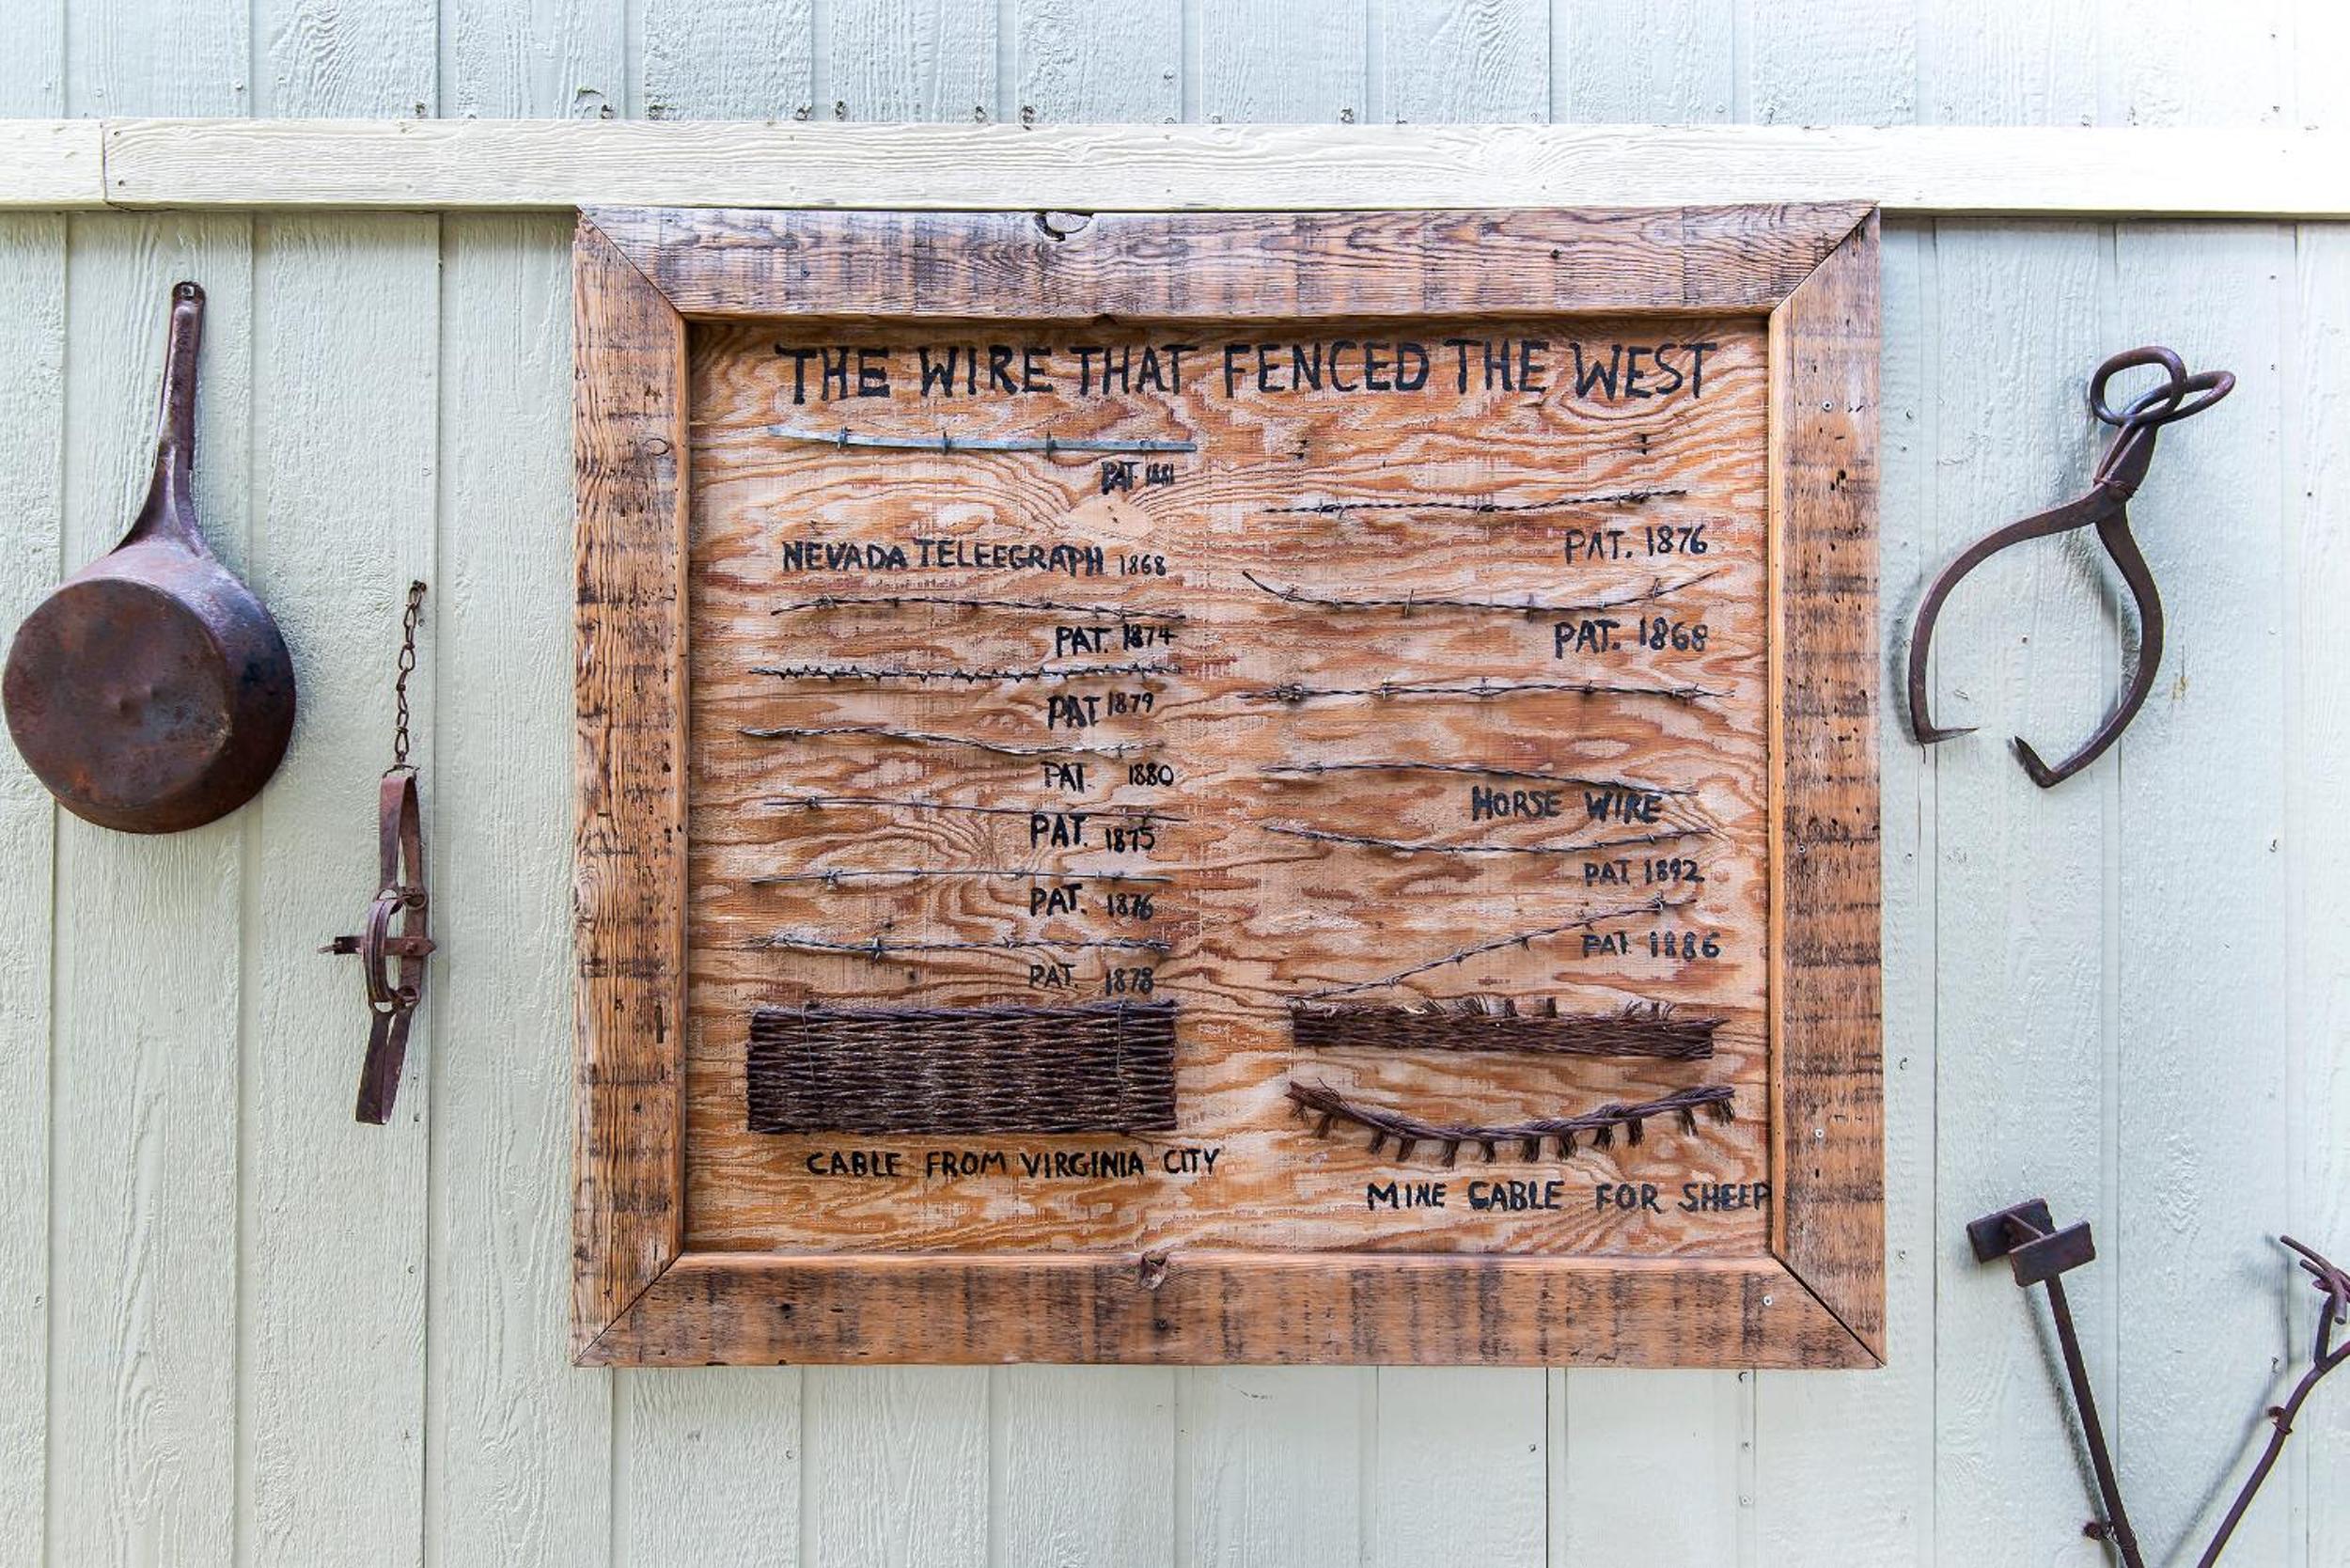 THE WIRE THAT FENCED THE WEST
PAT 1881
NEVADA TELEEGRAPH 1868
PAT. 1874
PAT 1879
PAT. 1880
PAT. 1875
PAT. 1876
PAT. 1878
CABLE FROM VIRGINIA CITY
PAT. 1876
PAT. 1868
HORSE WIRE
PAT 1892
PAT 1886
MINE CABLE FOR SHEEP